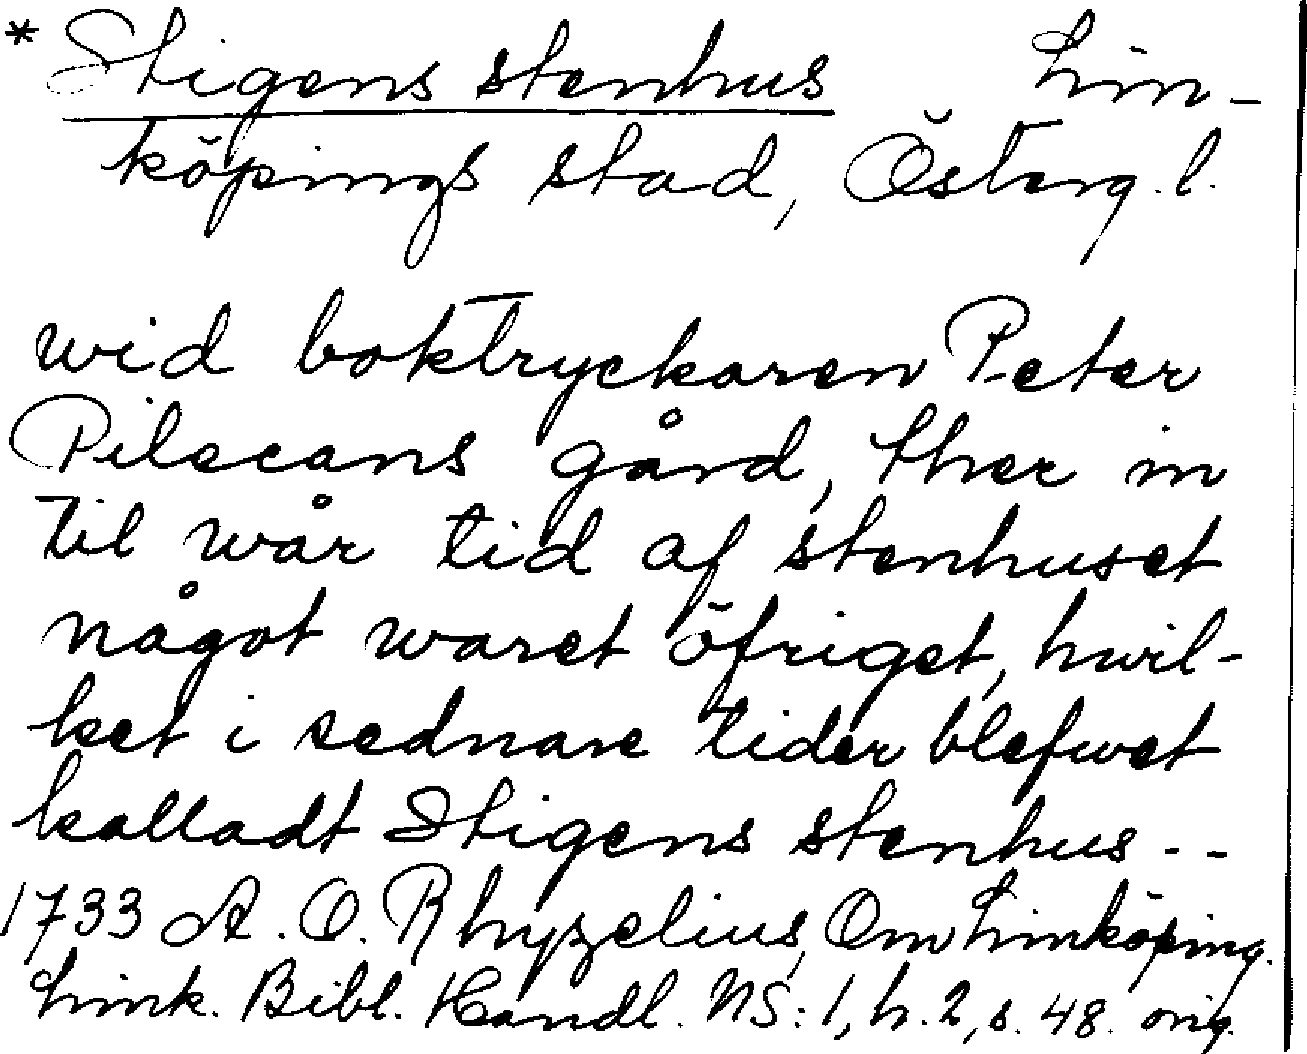 * Stigens stenhus Lin-
köpings stad, Österg.l.
wid boktryckaren Peter
Pilecans gård, ther in
til wår tid af stenhuset
något waret öfriget, hwil-
ket i sednare tider blefwet
kalladt Stigens stenhus --
1733 A. O. Rhyzelius, Om Linköping.
Link. Bibl. Handl. NS: 1, h. 2, s. 48. orig.